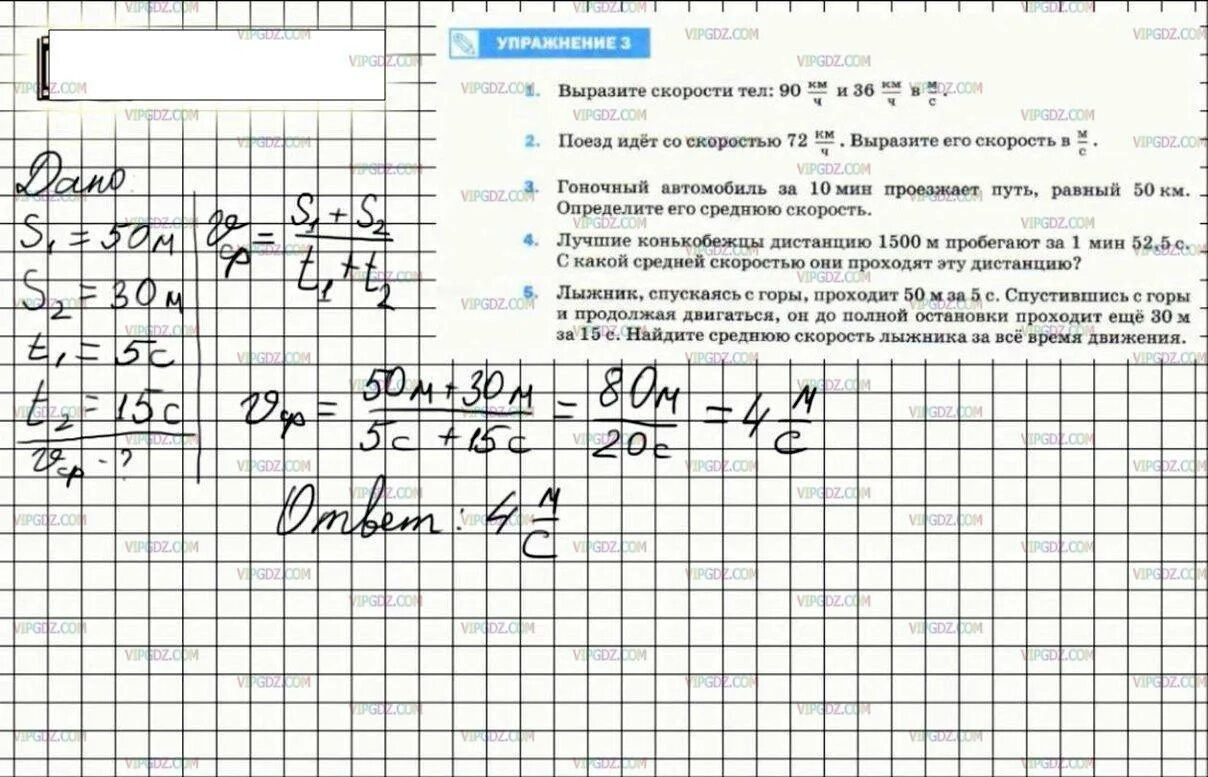 УПРАЖНЕНИЕ 3
1. Выразите скорости тел: 90 км/ч и 36 км/ч в м/с.
2. Поезд идёт со скоростью 72 км/ч. Выразите его скорость в м/с.
3. Гоночный автомобиль за 10 мин проезжает путь, равный 50 км.
Определите его среднюю скорость.
4. Лучшие конькобежцы дистанцию 1500 м пробегают за 1 мин 52,5 с.
С какой средней скоростью они проходят эту дистанцию?
5. Лыжник, спускаясь с горы, проходит 50 м за 5 с. Спустившись с горы
и продолжая двигаться, он до полной остановки проходит ещё 30 м
за 15 с. Найдите среднюю скорость лыжника за всё время движения.
Дано
S₁ = 50м
S₂ = 30м
t₁ = 5с
t₂ = 15с
υср - ?
υср = (S₁ + S₂)/(t₁ + t₂)
υср = (50м + 30м)/(5с + 15с) = 80м/20с = 4 м/с
Ответ: 4 м/с
VIPGDZ.COM